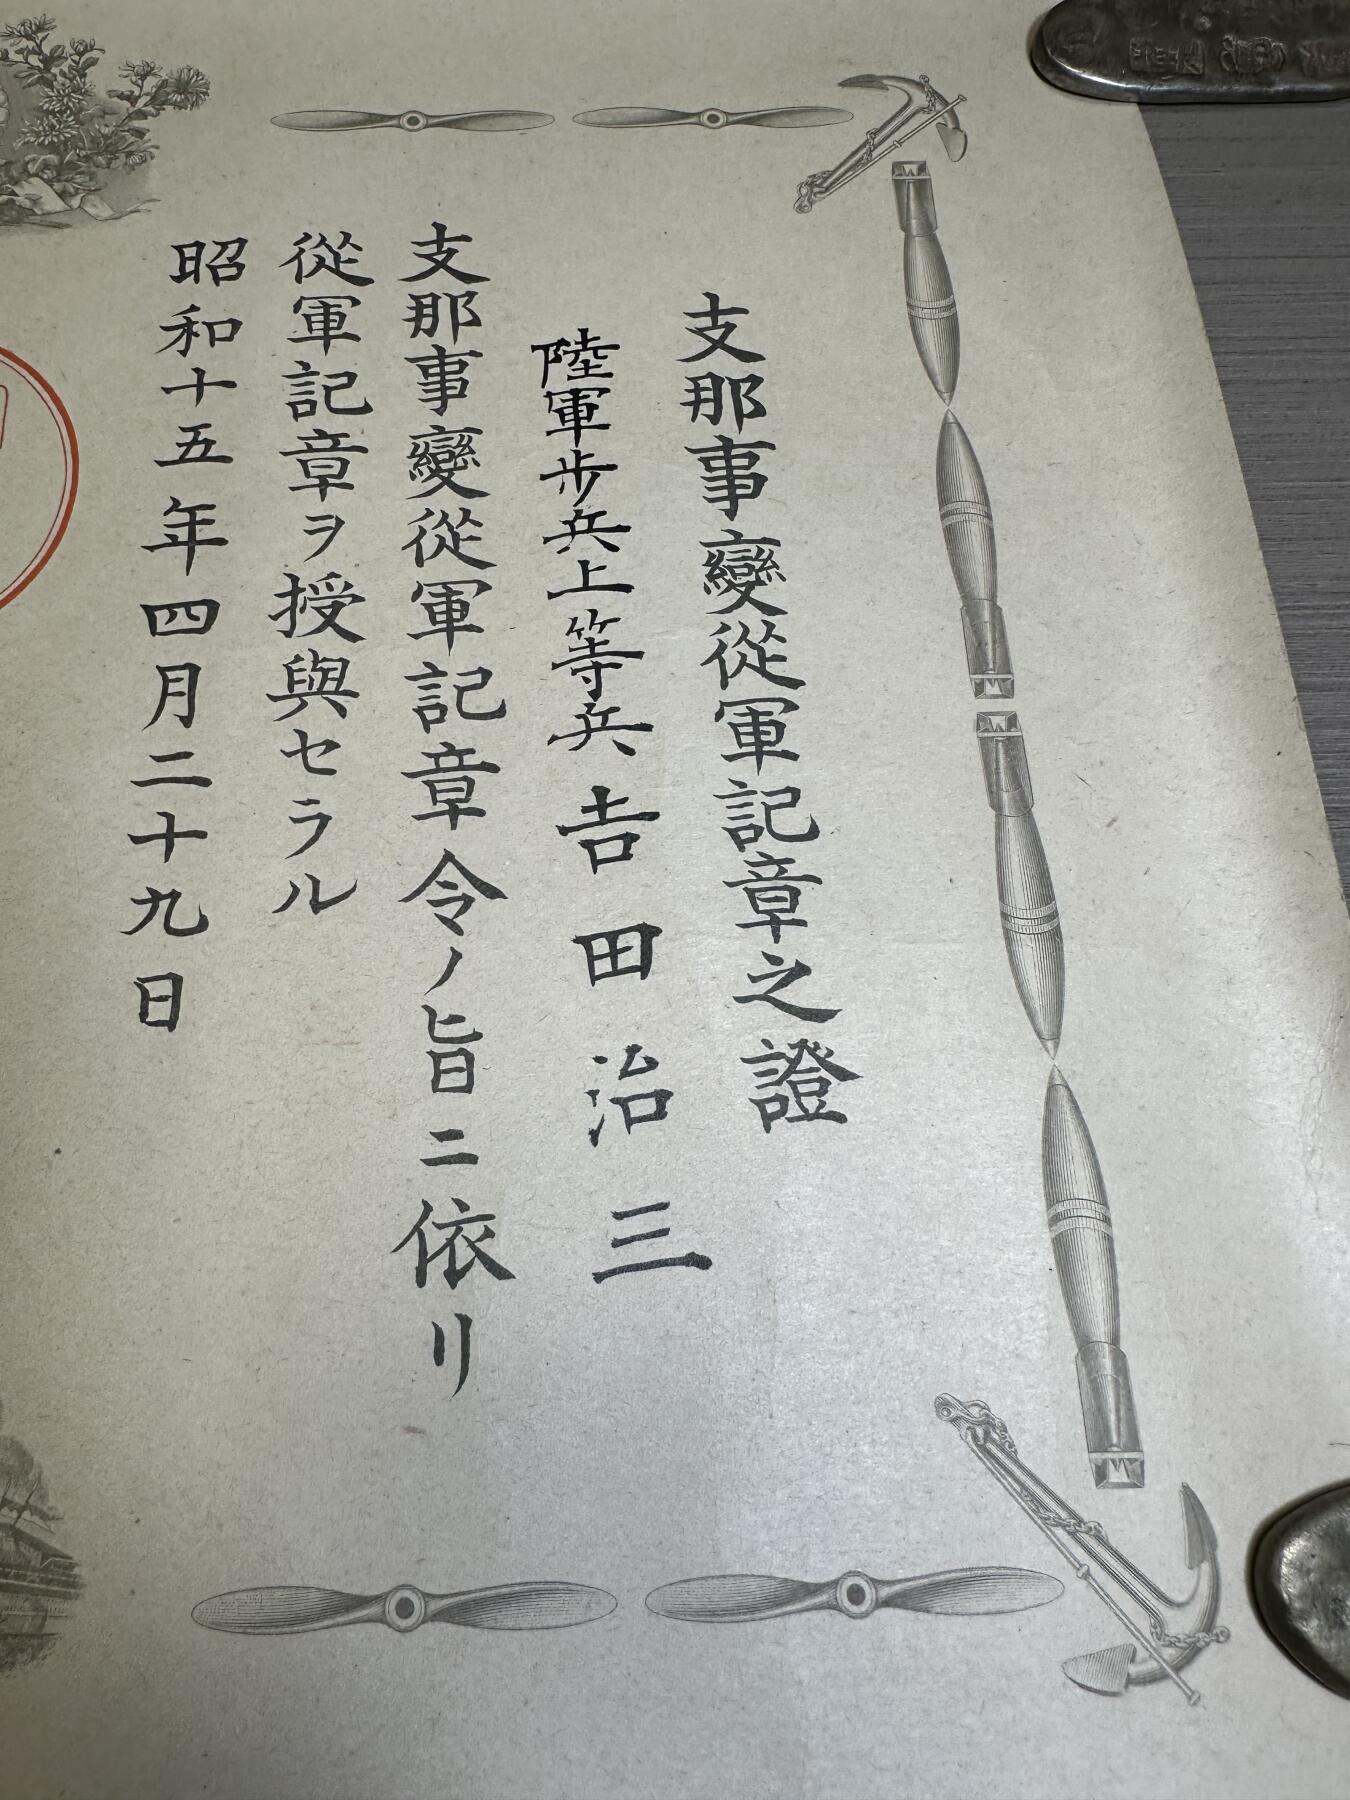 支那事變從軍記章之證
陸軍歩兵上等兵 吉田治三
支那事變從軍記章令ノ旨ニ依リ
從軍記章ヲ授與セラル
昭和十五年四月二十九日